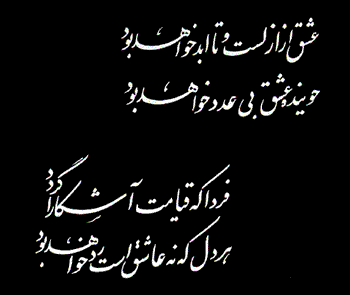 عشق از ازلست و تا ابد خواهد بود
جوینده عشق بی عدد خواهد بود
فردا که قیامت آشکارا گردد
هر دل که نه عاشق است رد خواهد بود